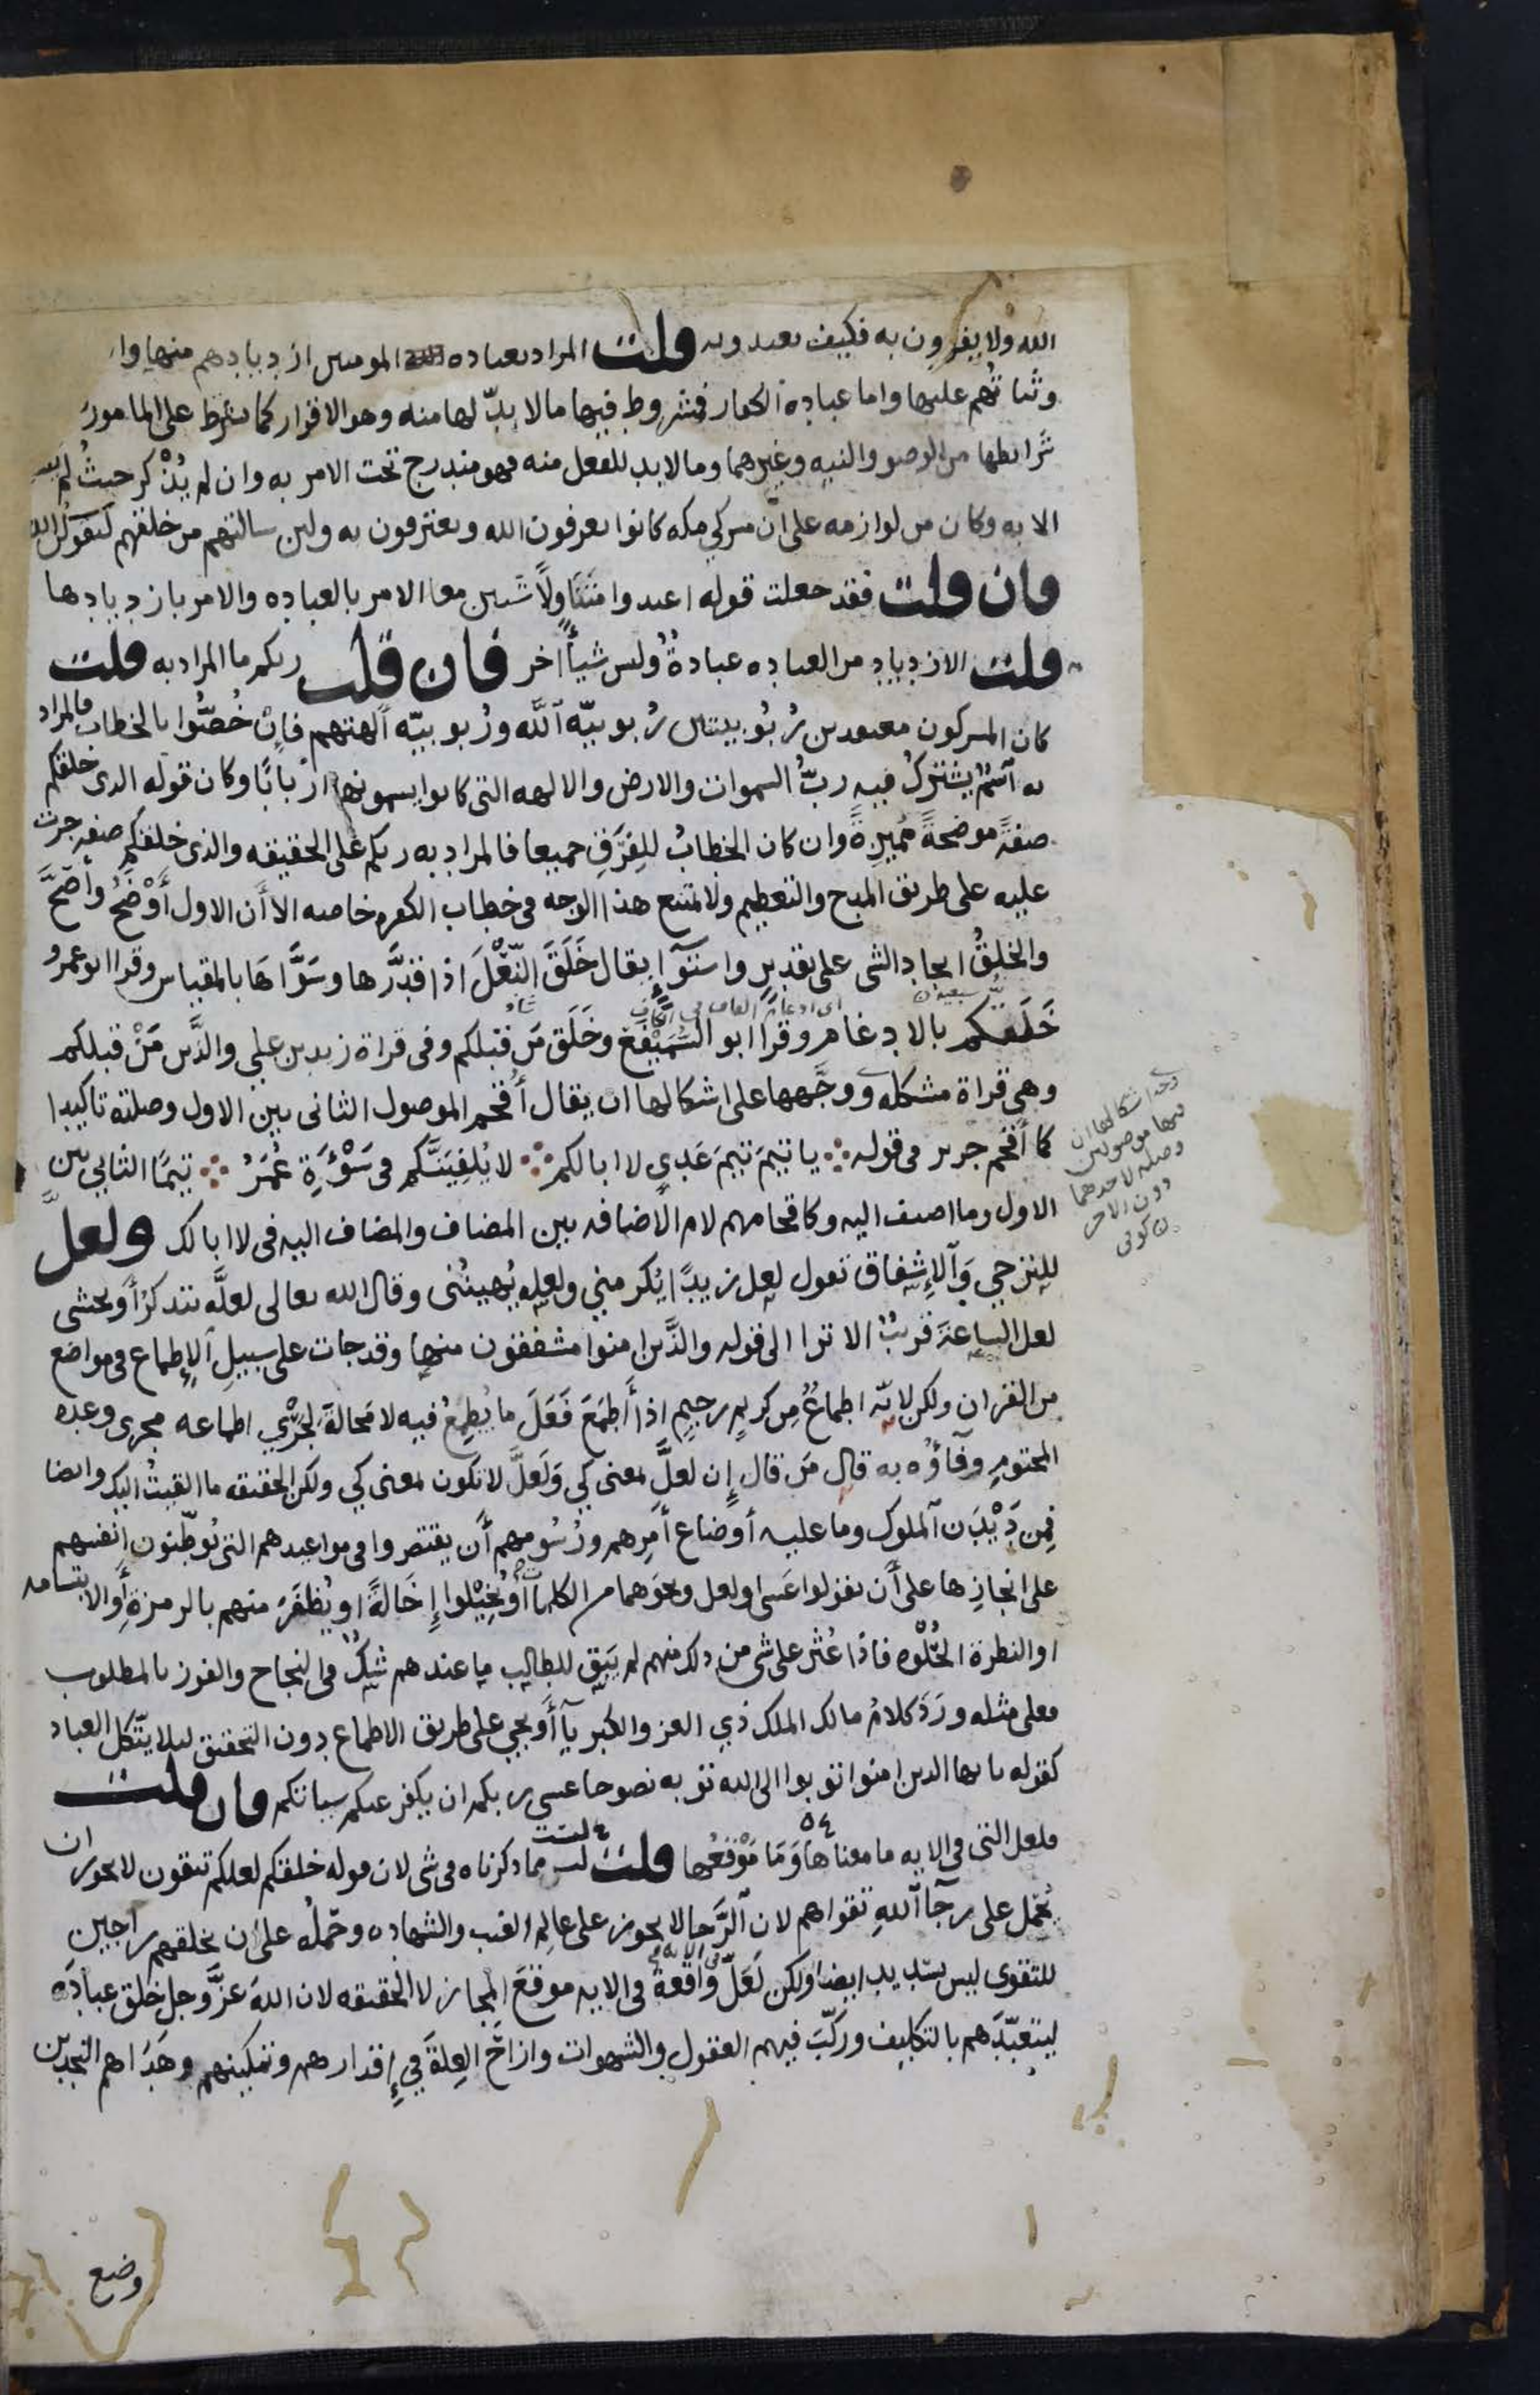 الله ولا يقرون به فكيف يعبدونه قلت المراد بعبادة المومنين ازديادهم منها وا
وثباتهم عليها واما عبادة الكفار فمشروط فيها ما لا بدّ لها منه وهو الاقرار كما يشترط على المامور
شرايطها من الوضو والنيه وغيرهما وما لا بد للفعل منه فهو مندرج تحت الامر به وان لم يُذْكر حيثُ لم
الا به وكان من لوازمه على انّ مشركي مكه كانوا يعرفون الله ويعترفون به ولين سالتهم من خلقهم ليقولن الله
فان قلت فقد جعلت قوله اعبدوا متناولًا شيين معا الامر بالعباده والامر بازديادها
قلت الازدياد من العباده عبادةٌ وليس شيأً اخر فان قلت ربكم ما المراد به قلت
كان المشركون معتقدين رُبُوبيتين رُبوبيّه الله ورُبوبيّه آلهتهم فإن خُصّوا بالخطاب فالمراد
به اسمٌ يشترك فيه ربُّ السموات والارض والالهه التي كانوا يسمونها اربابًا وكان قوله الذي خلقكم
صفةً موضحةً مميزةً وان كان الخطابُ للفِرَقِ جميعا فالمراد به ربكم على الحقيقه والذي خلقكم صفه جرت
عليه على طريق المدح والتعظيم ولا يمتنع هذا الوجه في خطاب الكفره خاصه الا أن الاول أَوْضَحُ وأصَحُّ
والخلقُ ايجاد الشي على تقديرٍ واستوآءٍ يقال خَلَقَ النّعْلَ اذا قدَّرها وسَوَّاهَا بالمقياس وقرا ابو عمرو
خَلَقكم بالادغام وقرا ابو السَّمَيْفَع وخَلَق مَن قبلكم وفي قراة زيد بن علي والذَّين مَنْ قبلكم
وهي قراة مشكله ووجَّهها على اشكالها ان يقال أُقحم الموصول الثاني بين الاول وصلته تاكيدا
كما أقحم جرير في قوله ∴ يا تيمَ تيمَ عَدِي لا ابالكم ∴ لا يُلقِيَنَّكم في سَوْءَةٍ عُمَرُ ∴ تيمًا الثاني بين
الاول وما اضيف اليه وكاقحامهم لام الاضافه بين المضاف والمضاف اليه في لا ابا لك ولعلَّ
للترجي وَالإشفاق تقول لعل زيدًا يُكرمني ولعله يُهينُني وقال الله تعالى لعلَّه يتذكرُ أو يخشى
لعل الساعةَ قريبٌ الا ترا الى قوله والذَّين امنوا مشفقون منها وقد جات على سبيلِ الإطماع في مواضع
من القران ولكن لانّه اطماعٌ مِن كريمٍ رحيمٍ اذا أَطمَعَ فَعَلَ ما يُطمِعُ فيه لا محالةَ لجَرْي اطماعه مجرى وعده
المحتومِ وفآؤُه به قال مَن قال إن لعلَّ بمعنى كي وَلَعلَّ لا تكون بمعنى كي ولكن الحقيقه ما القيتُ اليك وايضا
فمِن دَيْدَن الملوك وما عليه أوضاع أمرِهم ورُسُومهم أن يقتصروا في مواعيدهم التي يُوطّنون انفسهم
على انجازِها على أن يقولوا عَسى ولعل ونحوَهما من الكلمات أو يُخِيْلوا إِخَالةً او يُظفَرَ منهم بالرمزة أو الابتسامه
او النظرة الحُلْوه فاذا عُثر على شي من ذلك منهم لم يَبق للطالِب ما عندهم شكٌ في النجاح والفوز بالمطلوب
فعلى مثله ورَدَ كلامُ مالك الملك ذي العز والكبريآ أو يجي على طريق الاطماع دون التحقيق ليلا يتّكل العباد
كقوله يايها الذين امنوا توبوا الى الله توبه نصوحا عسى ربكم ان يكفر عنكم سياتكم فان قلت
فلعل التي في الايه ما معناها وَمَا مَوْقعُها قلت ليست مما ذكرناه في شي لان قوله خلقكم لعلكم تتقون لا يجوز ان
يُحمل على رجآ اللهِ تقواهم لان الرَّجا لا يجوز على عالِم الغيب والشهاده وحمْلُه على ان يخلقهم راجين
للتقوى ليس بسديد ايضا ولكن لَعَلّ واقعةٌ في الايه موقعَ المجاز لا الحقيقه لان اللهَ عزَّ وجل خلق عبادَه
ليتعبّدَهم بالتكليف وركّبَ فيهم العقول والشهوات وازاحَ العِلةَ في إقدارهم وتمكينهم وهَدَاهم النجدين
وجه اشكالها ان
فيها موصولين
وصله لاحدهما
دون الاخر
وضع